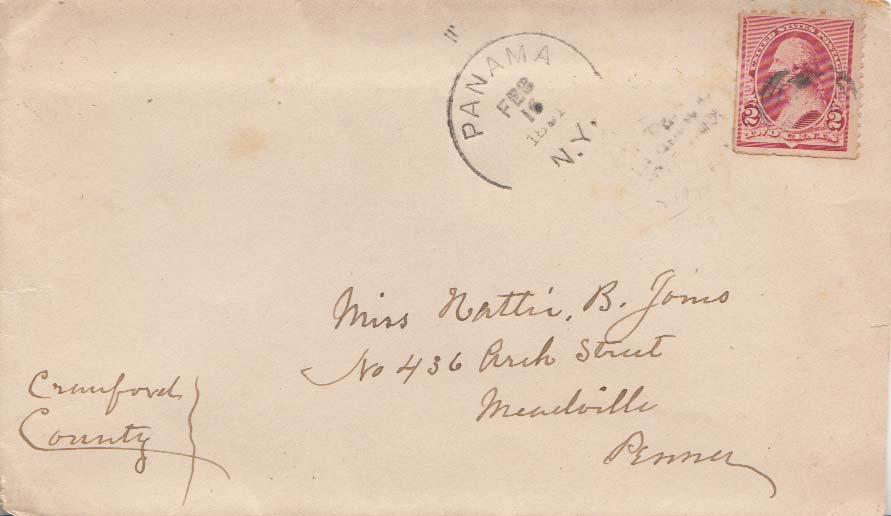 UNITED STATES POSTAGE
2 2
TWO CENTS
PANAMA
FEB
16
N.Y.
Miss Hattie, B. Jones
No 436 Arch Street
Meadville
Penna
Crawford
County